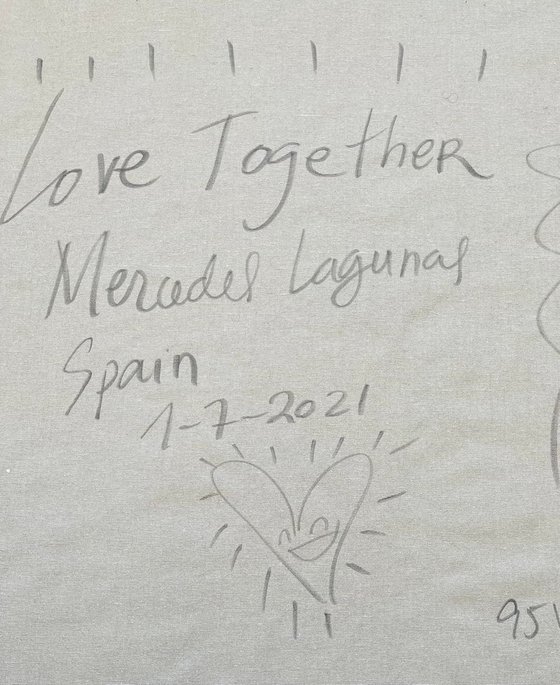 Love Together
Mercedes Lagunas
Spain
1-7-2021
95